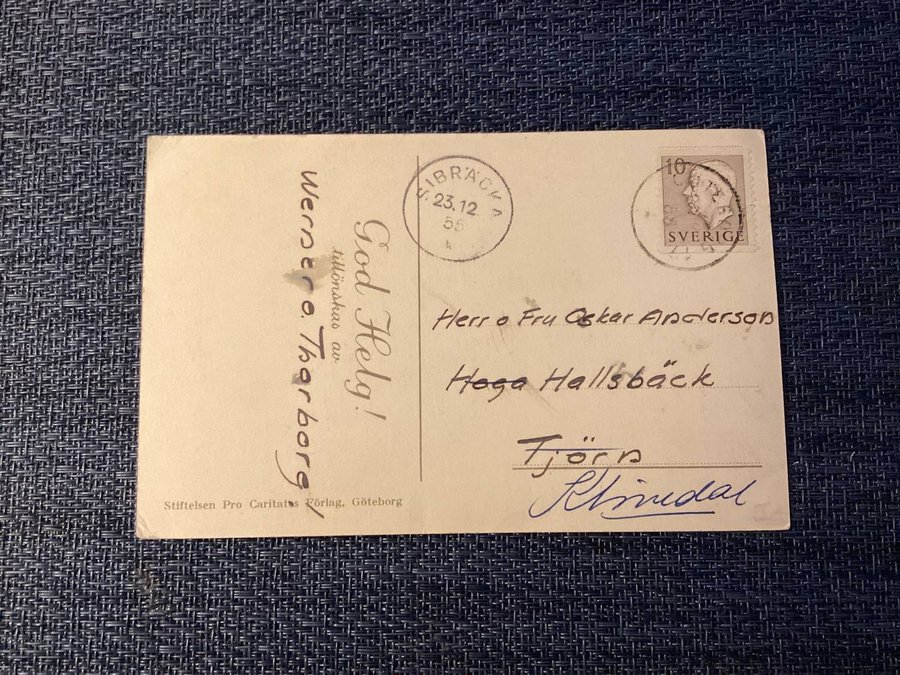 God Helg!
tillönskas av
Werner o. Tharborg
Stiftelsen Pro Caritatas Förlag, Göteborg
SIBRÄCKA
23.12
55
10
SVERIGE
Herr o Fru Oskar Anderson
Höga Hallsbäck
Tjörn